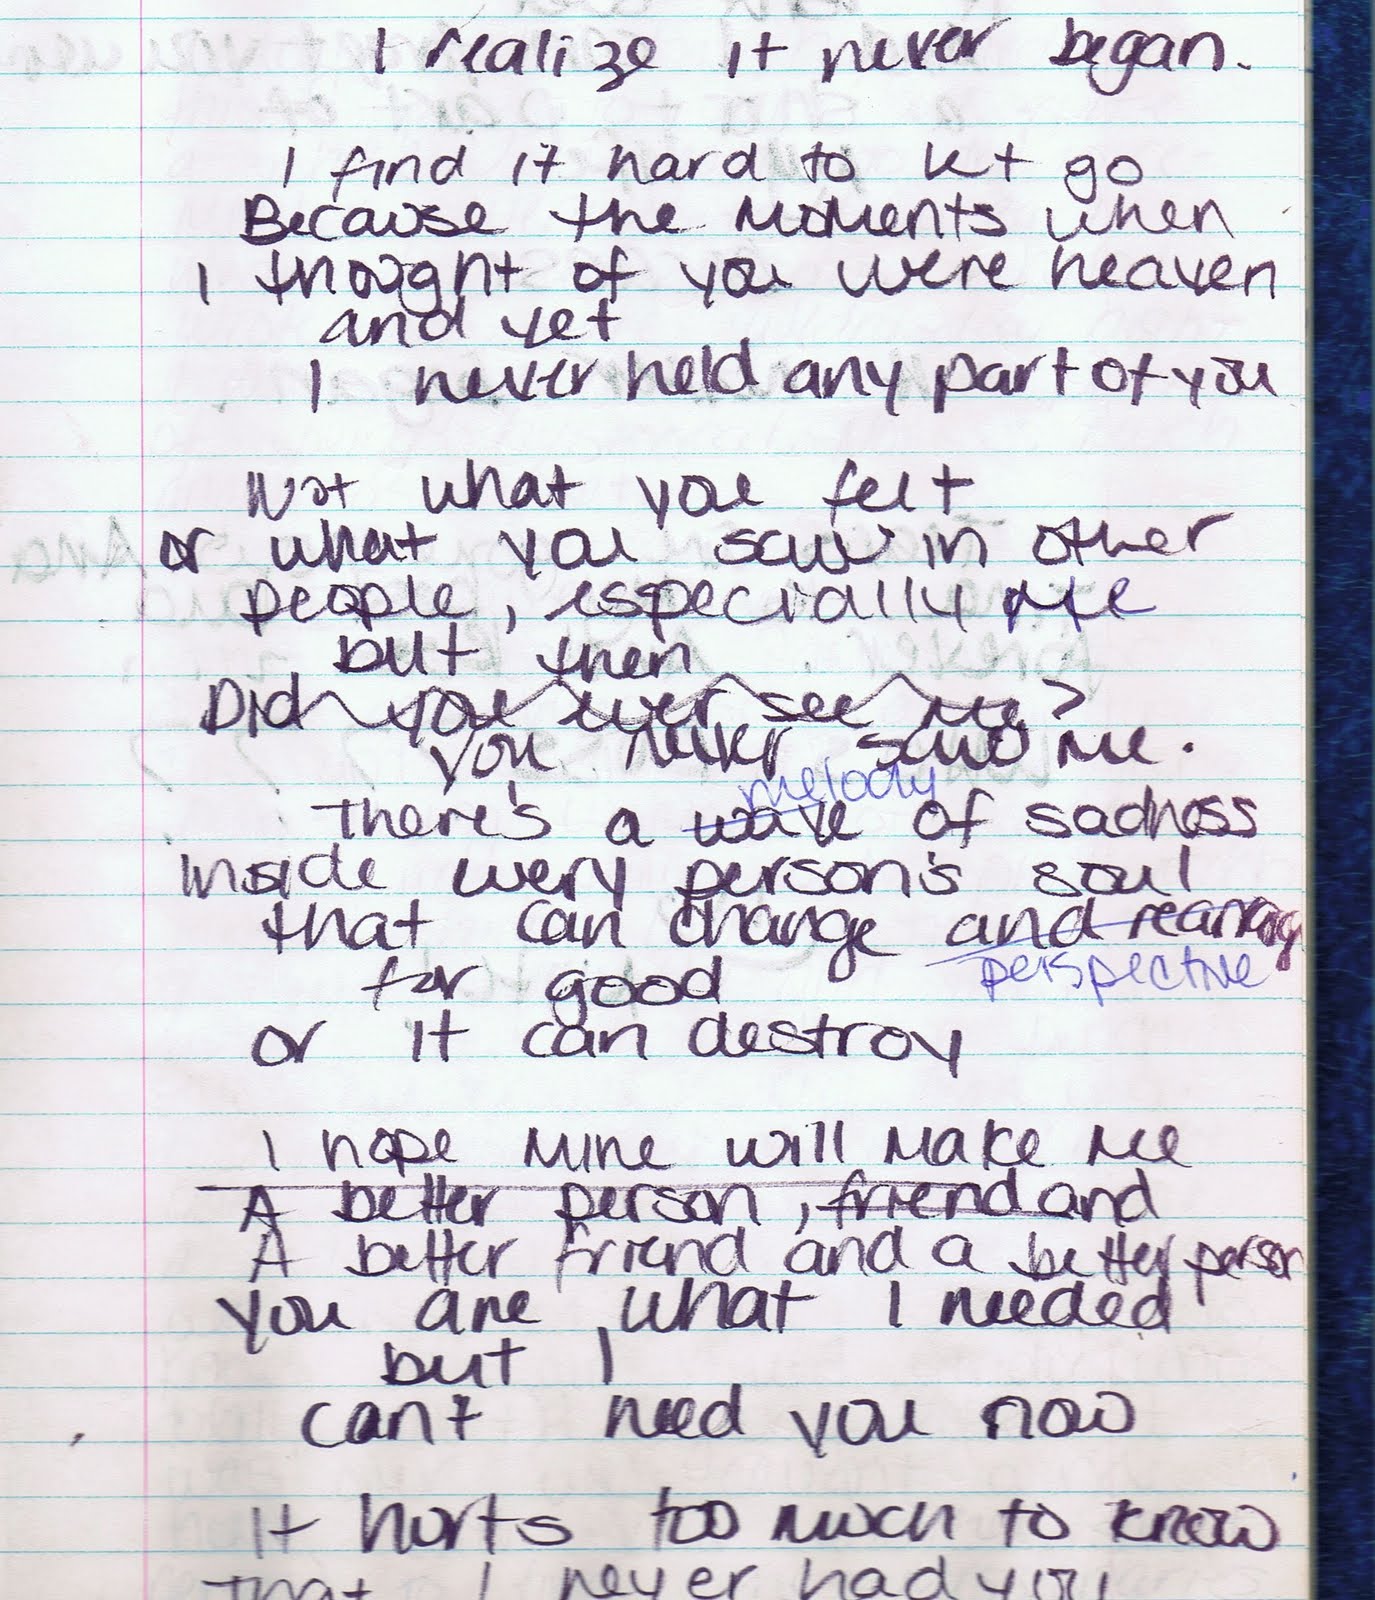 I realize it never began.
I find it hard to let go
Because the moments when
I thought of you were heaven
and yet
I never held any part of you
Not what you felt
or what you saw in other
people, especially me
but then
Did you ever see me?
you never saw me.
melody
There's a wave of sadness
Inside every person's soul
that can change and rearrang
perspective
for good
or it can destroy
I hope mine will make me
A better person, friend and
A better friend and a better person
You are what I needed
but I
can't need you now
It hurts too much to know
that I never had you